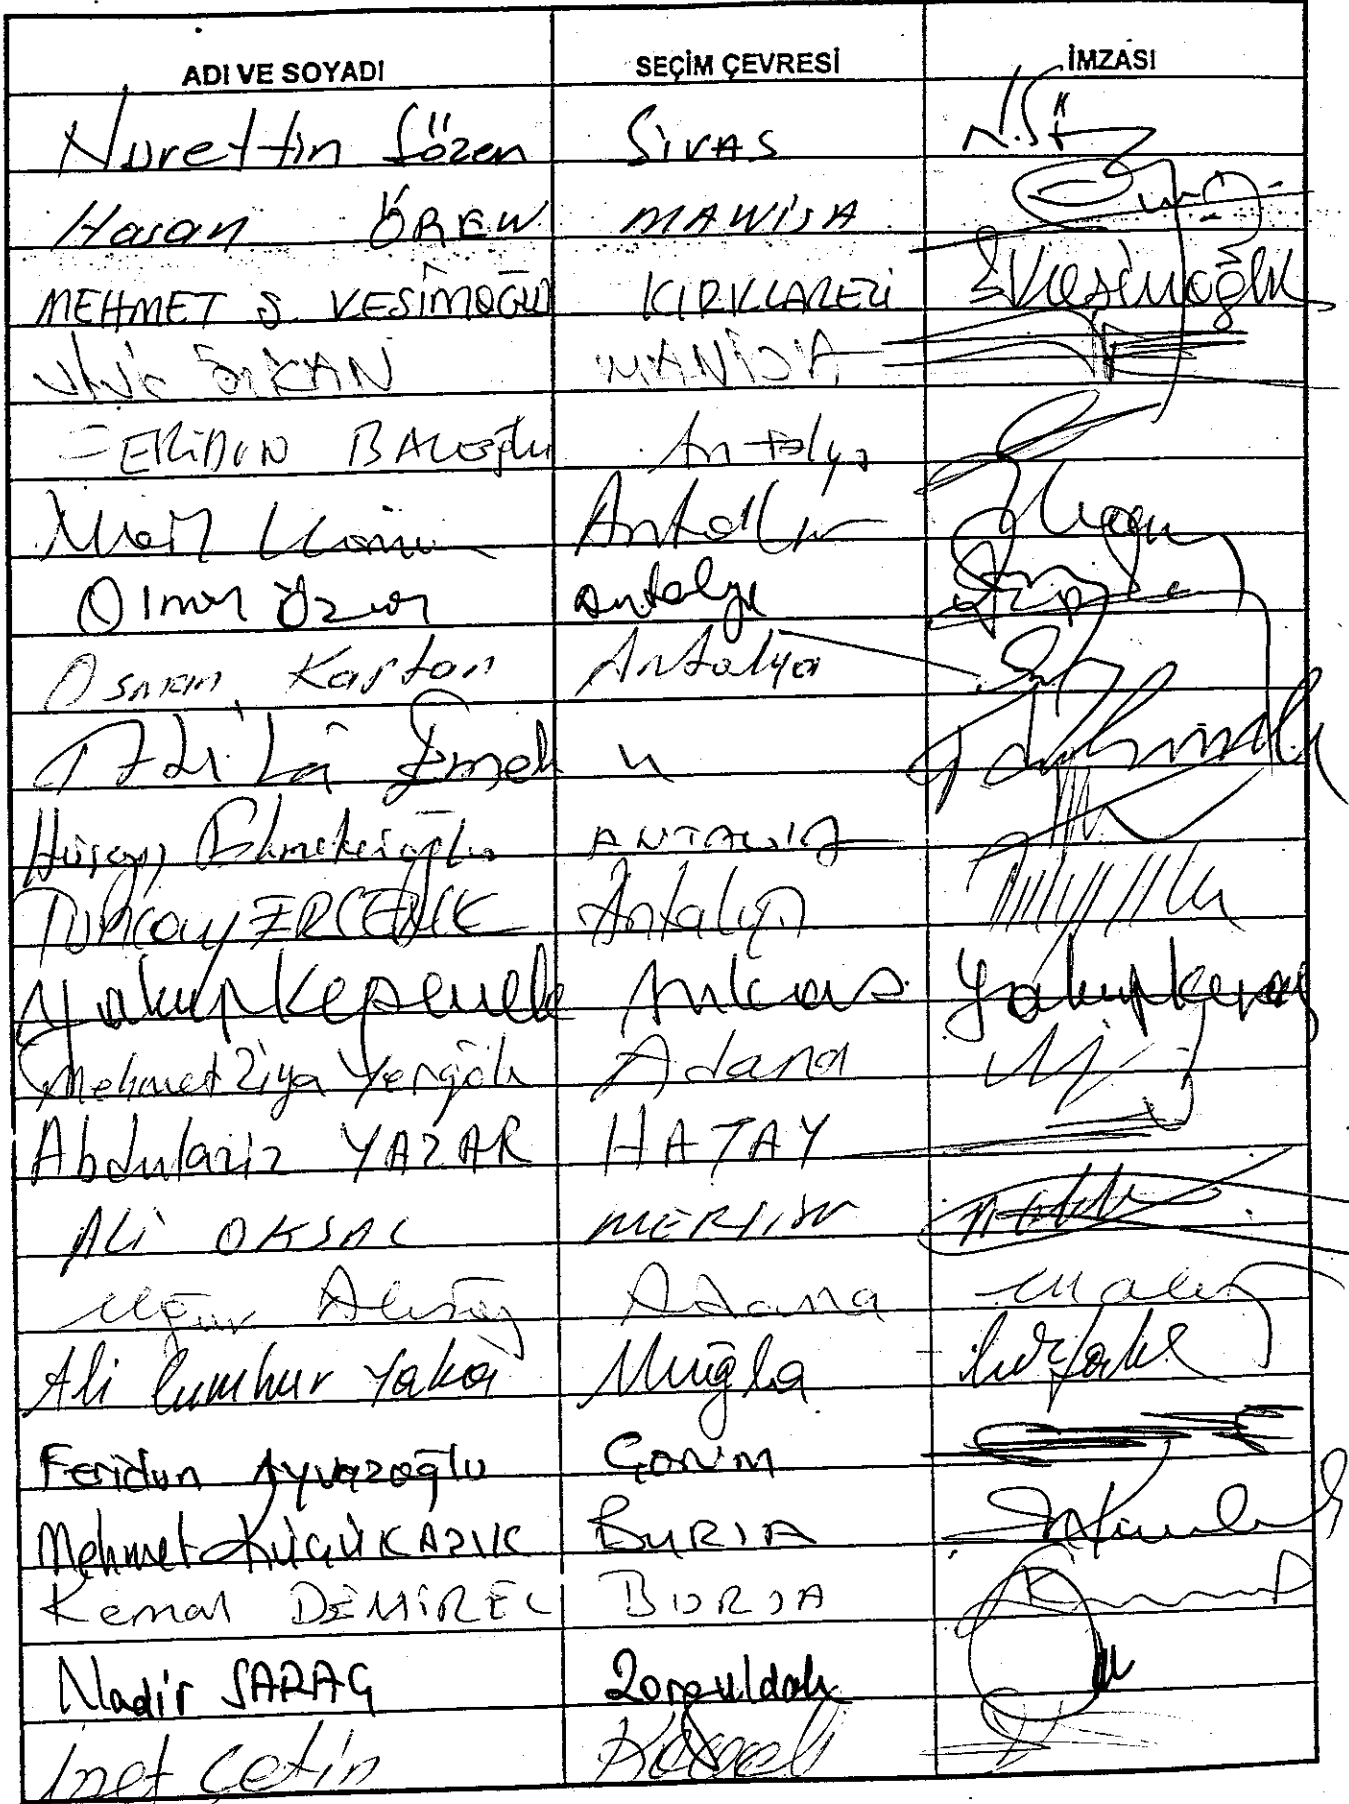 ADI VE SOYADI SEÇİM ÇEVRESİ İMZASI
Nurettin Sözen SİVAS N.Sö
Hasan ÖREN MANİSA
MEHMET S. KESİMOĞLU KIRKLARELİ Kesimoğlu
MANİSA
FERİDUN BALOĞLU Antalya
Nail Antalya
Osman Özcan Antalya
Osman Kaptan Antalya
Atila Emek "
Hüseyin Ekmekcioğlu ANTALYA
Tuncay ERCENK Antalya
Yakup Kepenek Ankara Yakup Kepenek
Mehmet Ziya Yergök Adana
Abdulaziz YAZAR HATAY
ALİ OKSAL MERSİN
Uğur Aksöz Adana
Ali Cumhur Yaka Muğla
Feridun Ayvazoğlu Çorum
Mehmet KÜÇÜKAŞIK BURSA
Kemal DEMİREL BURSA
Nadir SARAÇ Zonguldak
İzzet Çetin Kocaeli